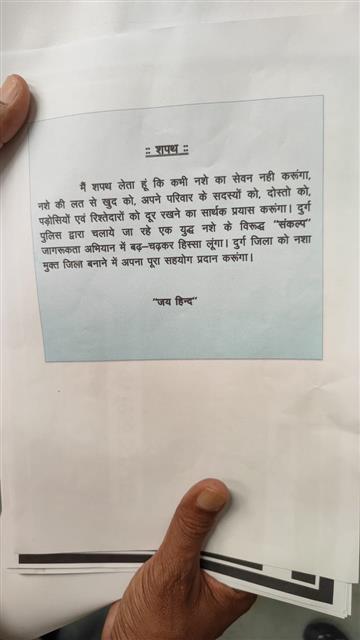 :: शपथ ::
मैं शपथ लेता हूं कि कभी नशे का सेवन नही करूंगा,
नशे की लत से खुद को, अपने परिवार के सदस्यों को, दोस्तो को,
पड़ोसियों एवं रिश्तेदारों को दूर रखने का सार्थक प्रयास करूंगा। दुर्ग
पुलिस द्वारा चलाये जा रहे एक युद्ध नशे के विरूद्ध "संकल्प"
जागरूकता अभियान में बढ़–चढ़कर हिस्सा लूंगा। दुर्ग जिला को नशा
मुक्त जिला बनाने में अपना पूरा सहयोग प्रदान करूंगा।
"जय हिन्द"